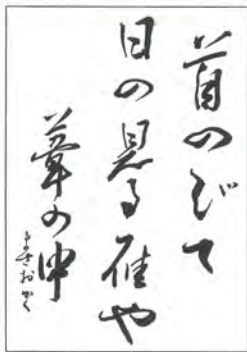 首のびて
日の見る雁や
葦の中